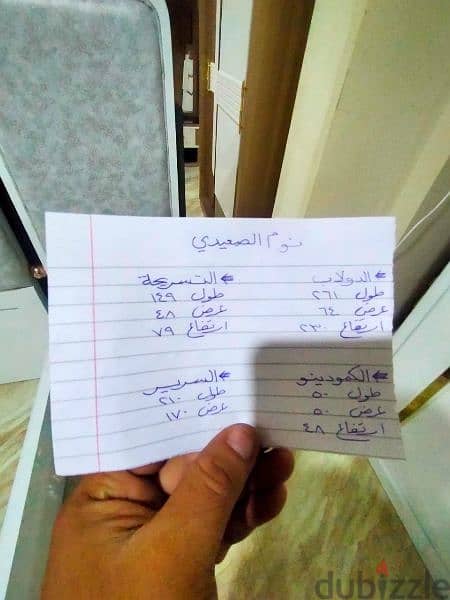 نوم الصعيدي
← الدولاب
طول ٢٦١
عرض ٦٤
ارتفاع ٢٣٠
← التسريحة
طول ١٤٩
عرض ٤٨
ارتفاع ٧٩
← الكمودينو
طول ٥٠
عرض ٥٠
ارتفاع ٤٨
← السرير
طول ٢١٠
عرض ١٧٠
dubizzle